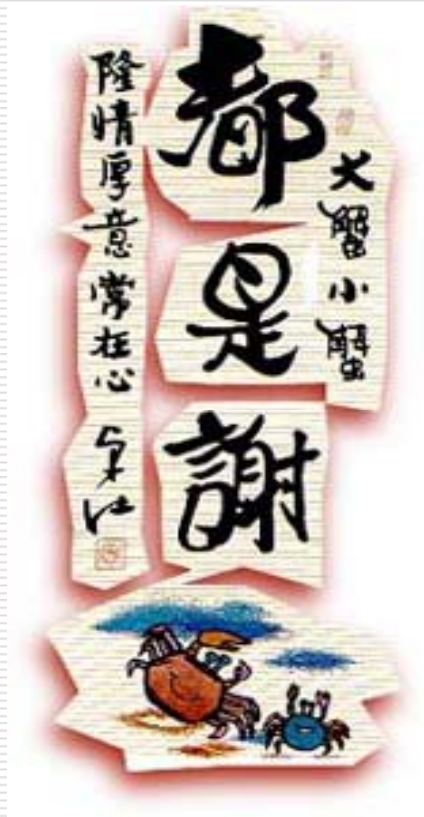 大蟹小蟹
都是謝
隆情厚意常在心